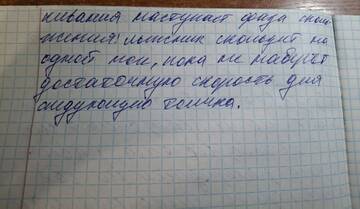 кивания наступает фаза сколь
жения: лыжник скользит на
одной ноге, пока не наберёт
достаточную скорость для
следующего толчка.